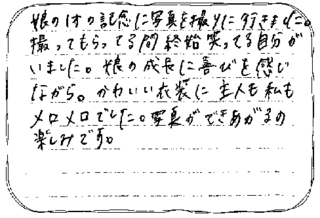 娘の1才の記念に写真を撮りに行きました。
撮ってもらってる間終始笑ってる自分が
いました。娘の成長に喜びを感じ
ながら。かわいい衣装に主人も私も
メロメロでした。写真ができあがるの
楽しみです。